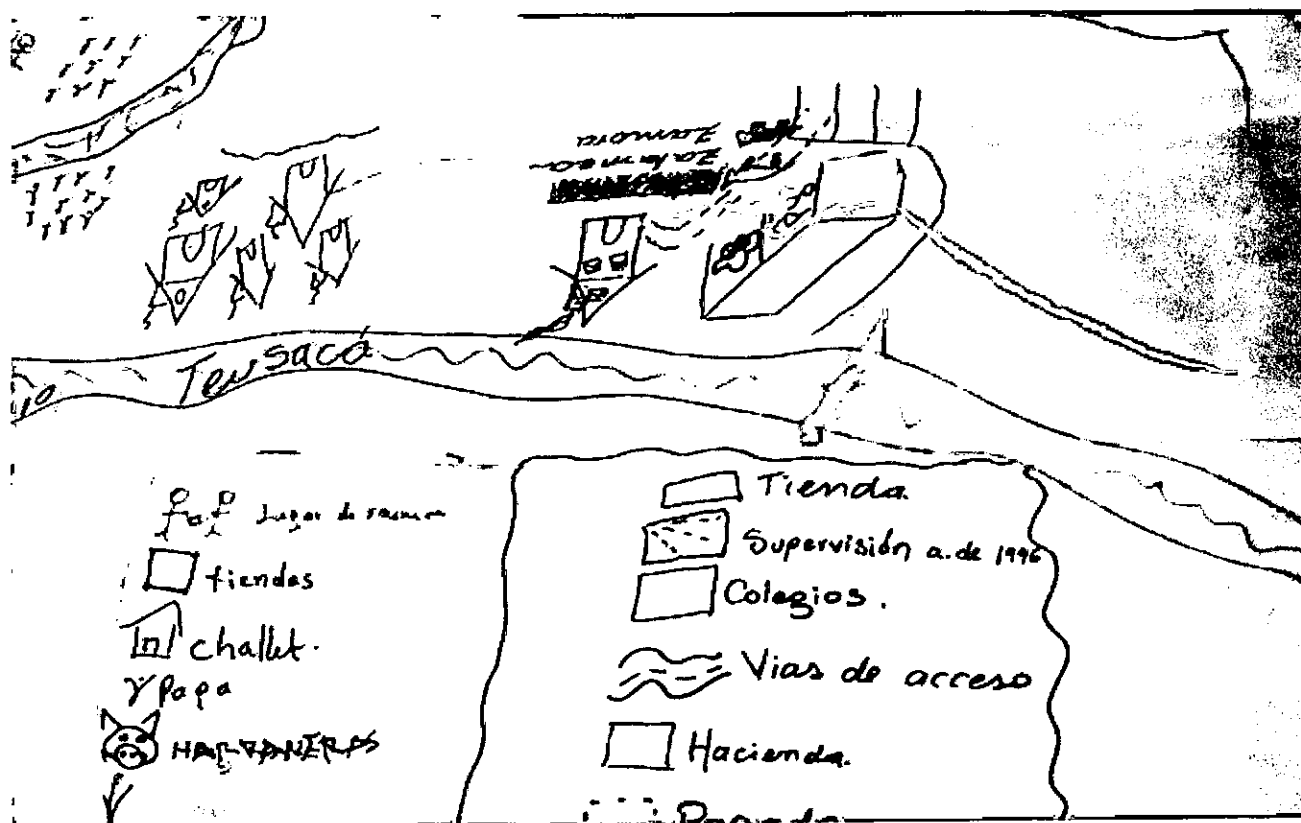 Zamora
Zalamea
Teusacá
Lugar de
tiendas
challet.
Papa
MARRANERAS
Tienda
Supervisión a. de 1996
Colegios.
Vias de acceso
Hacienda.